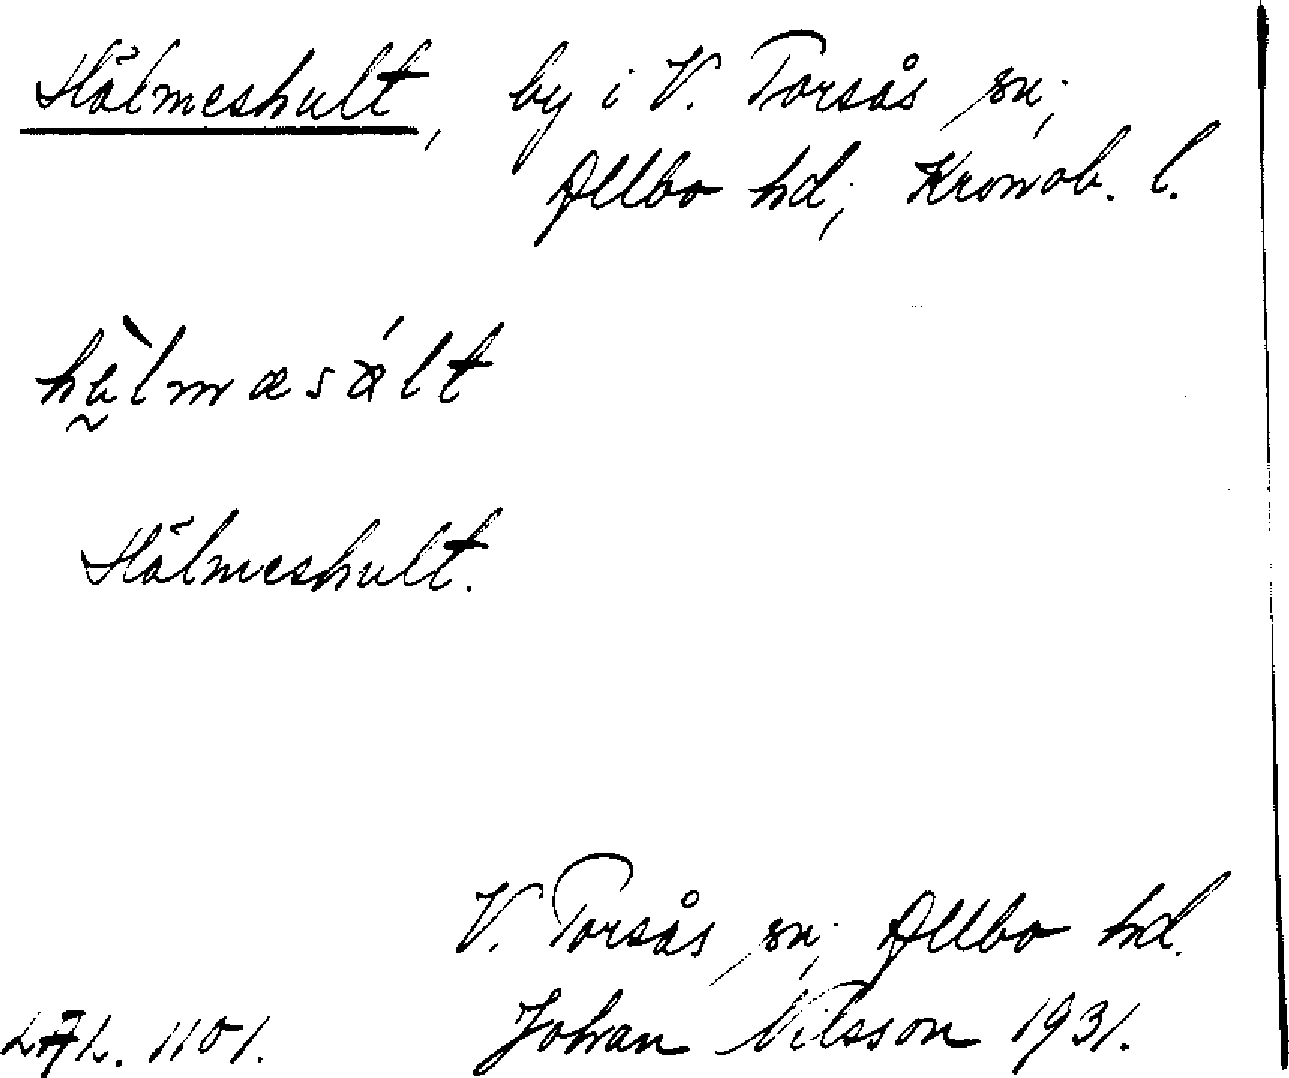 Hälmeshult, by i V. Torsås sn;
Allbo hd; Kronob. l.
hälmæsált
Hälmeshult.
V. Torsås sn; Allbo hd.
Johan Nilsson 1931.
1101.